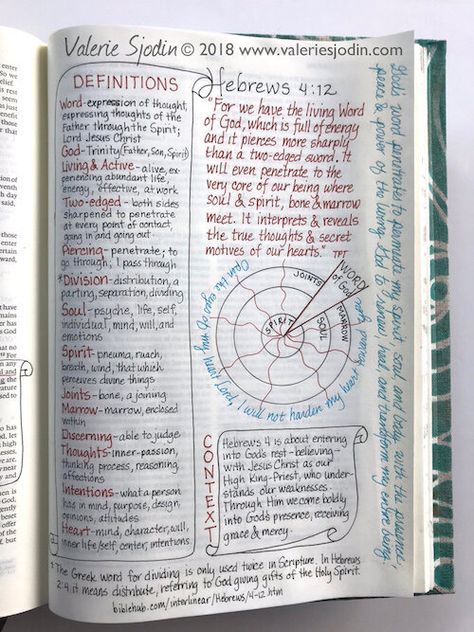 Valerie Sjodin © 2018 www.valeriesjodin.com
DEFINITIONS
Word - expression of thought,
expressing thoughts of the
Father through the Spirit;
Lord Jesus Christ
God - Trinity (Father, Son, Spirit)
Living & Active - alive, ex-
periencing abundant life,
energy, effective, at work
Two-edged - both sides
sharpened to penetrate
at every point of contact,
going in and going out
Piercing - penetrate; to
go through; I pass through
*Division - distribution, a
parting, separation, dividing
Soul - psyche, life, self,
individual, mind, will, and
emotions
Spirit - pneuma, ruach,
breath, wind, that which
perceives divine things
Joints - bone, a joining
Marrow - marrow, enclosed
within
Discerning - able to judge
Thoughts - inner-passion,
thinking process, reasoning,
affections
Intentions - what a person
has in mind, purpose, design,
opinions, attitudes
Heart - mind, character, will,
inner life/self, center, intentions
Hebrews 4:12
"For we have the living Word
of God, which is full of energy
and it pierces more sharply
than a two-edged sword. It
will even penetrate to the
very core of our being where
soul & spirit, bone & marrow
meet. It interprets & reveals
the true thoughts & secret
motives of our hearts." TPT
WORD
of God
JOINTS
MARROW
SOUL
SPIRIT
Open the eyes of my heart Lord, I will not harden my heart
God's word penetrates to permeate my spirit, soul and body, with the presence,
peace & power of the living God to renew, heal, and transform my entire being.
CONTEXT
Hebrews 4 is about entering
into God's rest - believing -
with Jesus Christ as our
High King-Priest, who under-
stands our weaknesses.
Through Him we come boldly
into God's presence, receiving
grace & mercy.
* The Greek word for dividing is only used twice in Scripture. In Hebrews
2:4 it means distribute, referring to God giving gifts of the Holy Spirit.
biblehub.com/interlinear/Hebrews/4-12.htm